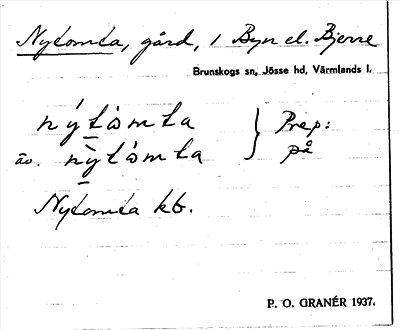 Nytomta, gård, i Byn el. Bjerre
Brunskogs sn, Jösse hd, Värmlands l.
nýtòmta } Prep:
äv. nỳtòmta på
Nytomta kb.
P. O. GRANÉR 1937.